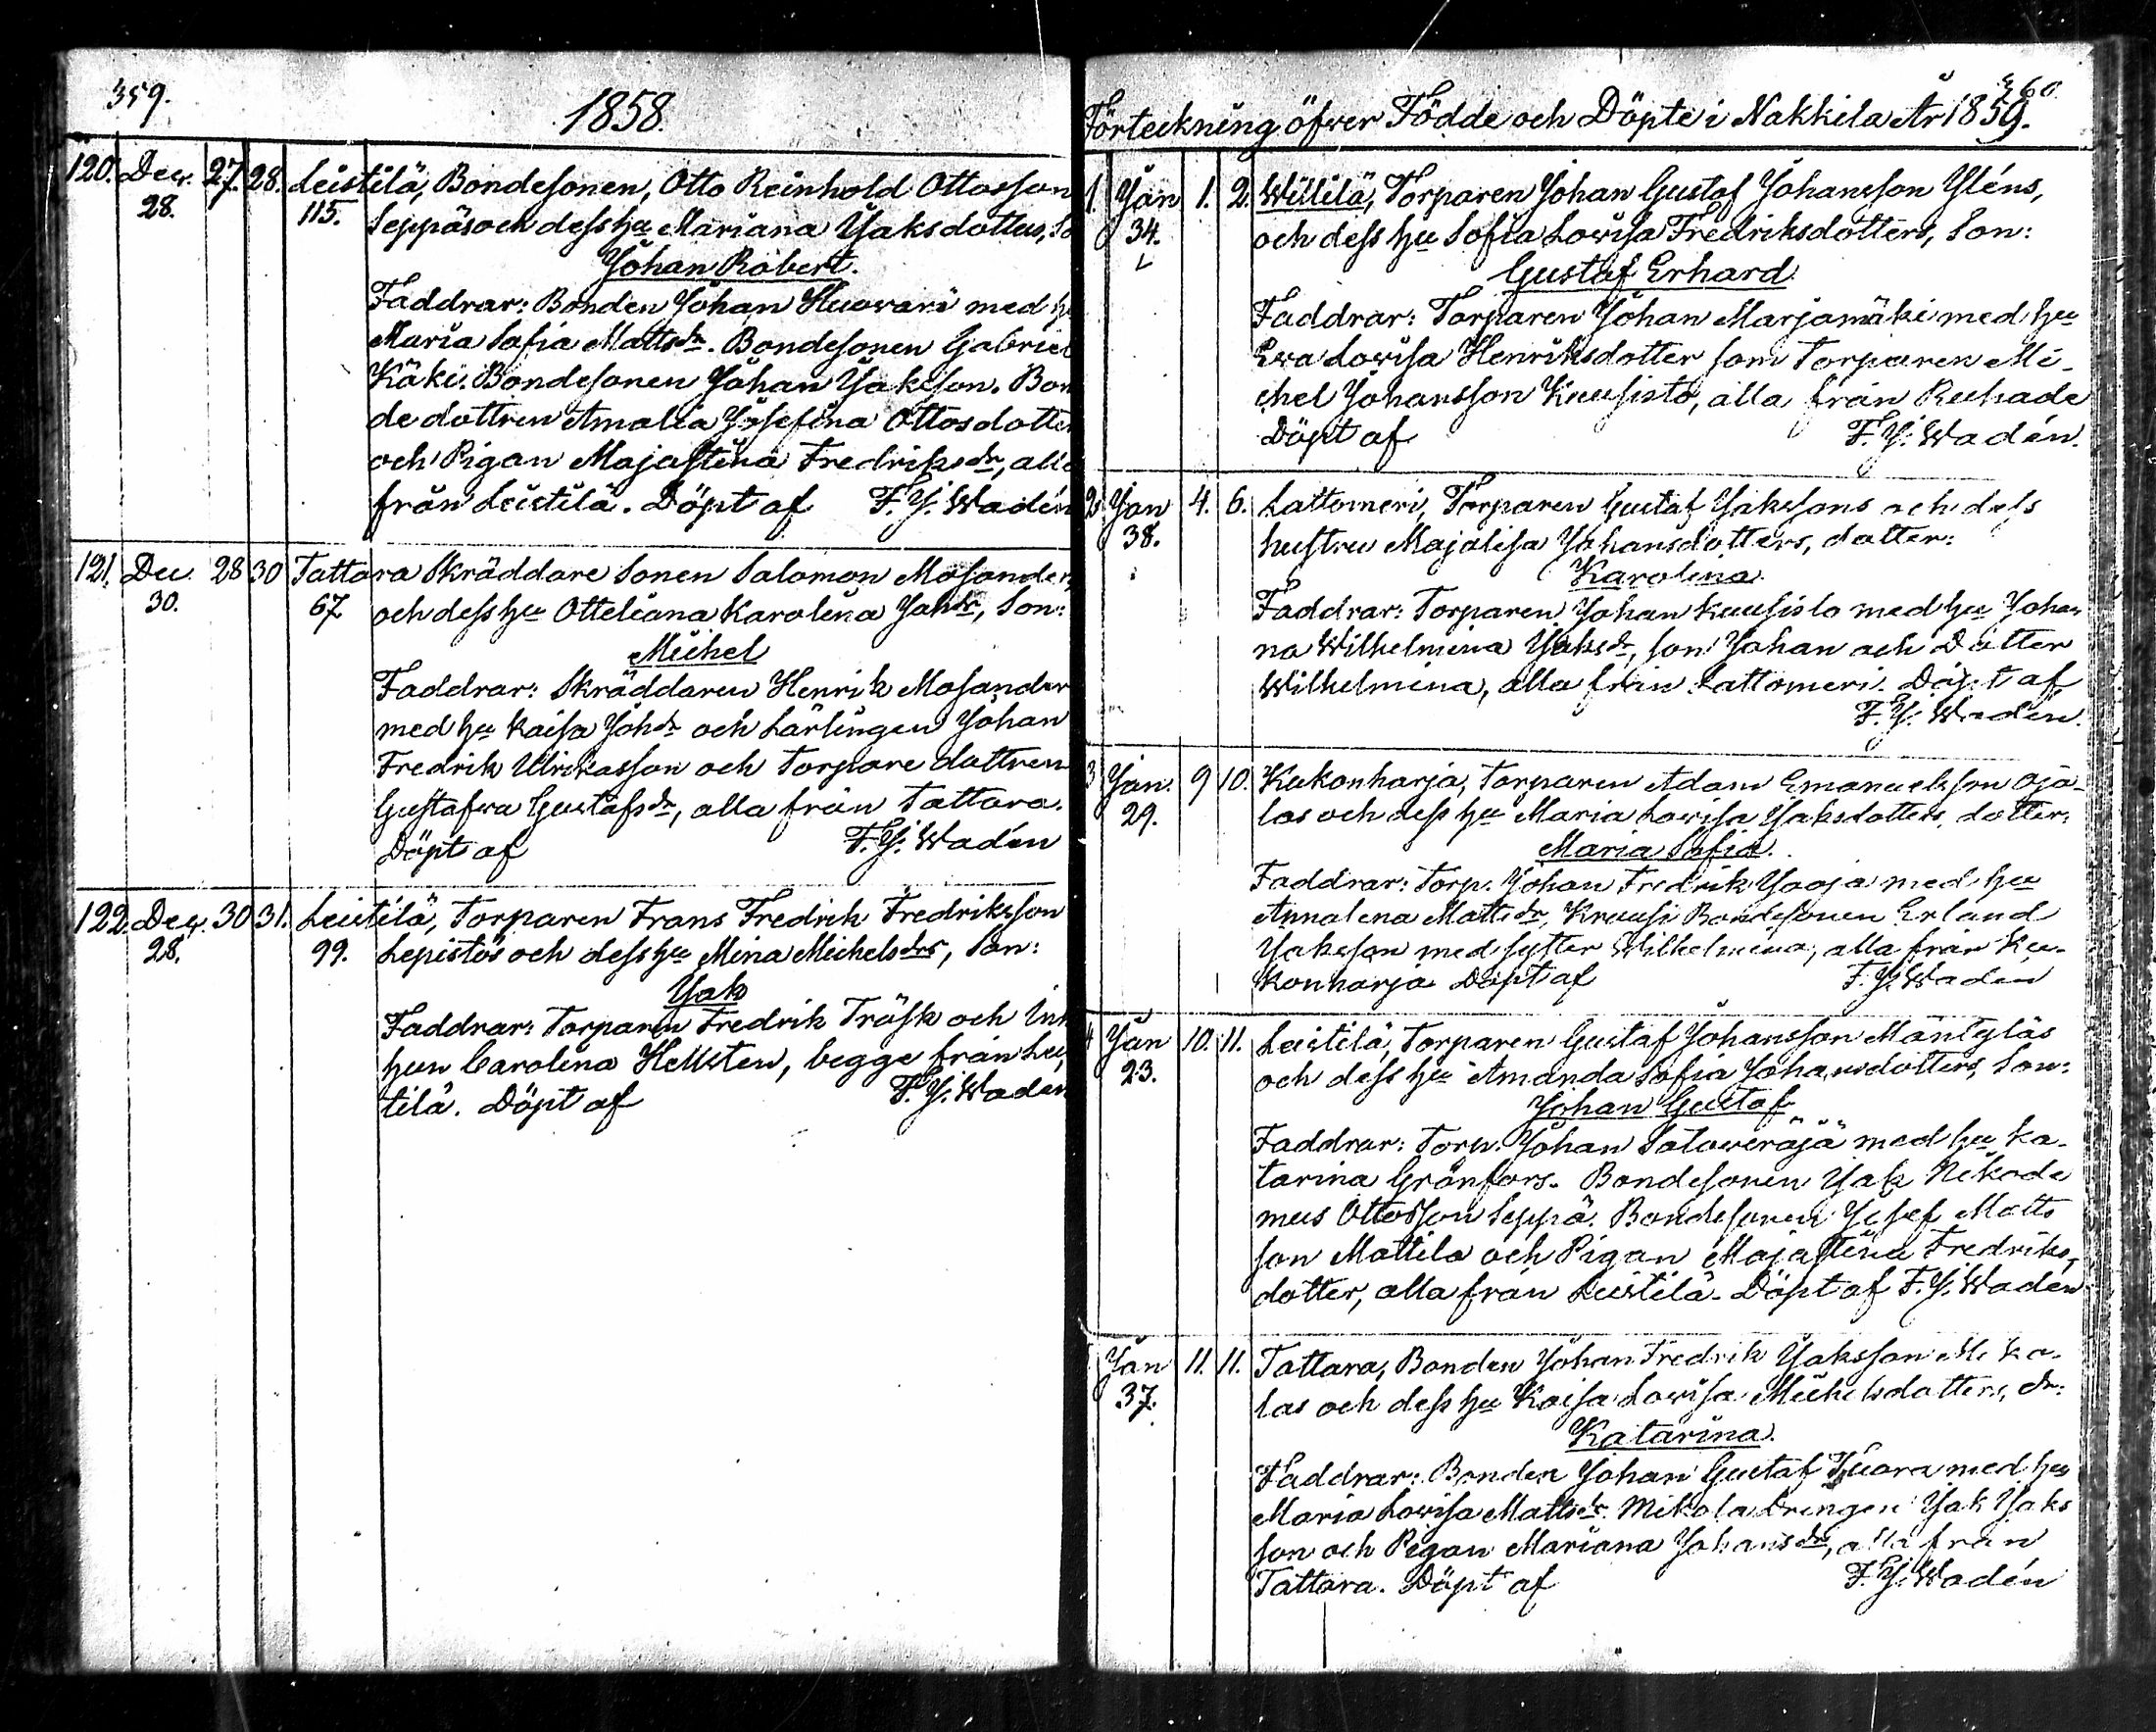 359.
1858.
120. Dec. 27. 28. Leistilä, Bondesonen, Otto Reinhold Ottosson
28. 115. Seppäs och dess hu Mariana Jaksdotters, So
Johan Robert.
Faddrar: Bonden Johan Huovari med hu
Maria Sofia Mattsdr. Bondesonen Gabriel
Käki. Bondesonen Johan Jaksson. Bon
de dottren Amalia Josefina Ottosdotter
och Pigan Majastina Fredriksdr, alla
från Leistilä. Döpt af F. J. Wadén
121. Dec. 28 30 Tattara Skräddare Sonen Salomon Mosander,
30. 67 och dess hu Otteliana Karolina Johdr, Son:
Michel
Faddrar: Skräddaren Henrik Mosander
med hu Kaisa Johdr och Lärlingen Johan
Fredrik Ulrikasson och Torpare dottren
Gustafva Gustafsdr, alla från Tattara.
Döpt af F. J. Wadén
122. Dec. 30 31. Leistilä, Torparen Frans Fredrik Fredriksson
28. 99. Lepistös och dess hu Mina Michelsdrs, Son:
Jak
Faddrar: Torparen Fredrik Träsk och Inh
hun Carolina Hellsten, begge från Leis
tilä. Döpt af F. J. Wadén
360.
Förteckning öfver Födde och Döpte i Nakkila År 1859.
1. Jan 1. 2. Willilä, Torparen Johan Gustaf Johansson Yléns,
34. och dess hu Sofia Lovisa Fredriksdotters, Son:
Gustaf Erhard
Faddrar: Torparen Johan Marjamäki med hu
Eva Lovisa Henriksdotter som Torparen Mi-
chel Johansson Kuusisto, alla från Ruhade
Döpt af F. J. Wadén.
2. Jan 4. 6. Lattomeri, Torparen Gustaf Jakssons och dess
38. hustru Majalisa Johansdotters, dotter:
Karolina
Faddrar: Torparen Johan Kuusisto med hu Johan
na Wilhelmina Jaksdr, son Johan och Dotter
Wilhelmina, alla från Lattomeri. Döpt af
F. J. Wadén.
3 Jan. 9 10. Kukonharja, Torparen Adam Emanuelsson Oja-
29. las och dess hu Maria Lovisa Jaksdotters, dotter:
Maria Sofia.
Faddrar: Torp. Johan Fredrik Jaoja med hu
Annalena Mattsdr, Kruusi Bondesonen Erland
Jaksson med syster Wilhelmina, alla från Ku-
konharja Döpt af F. J. Wadén
4 Jan 10. 11. Leistilä, Torparen Gustaf Johansson Mäntyläs
23. och dess hu Amanda Sofia Johansdotters, Son:
Johan Gustaf
Faddrar: Torp. Johan Saloveräjä med hu Ka-
tarina Grönfors. Bondesonen Jak Nikode
mus Ottosson Seppä. Bondesonen Josef Matts
son Mattila och Pigan Majastina Fredriks-
dotter, alla från Leistilä. Döpt af F. J. Wadén
Jan 11. 11. Tattara, Bonden Johan Fredrik Jaksson Miko-
37. las och dess hu Kaisa Lovisa Michelsdotters, dr:
Katarina.
Faddrar: Bonden Johan Gustaf Knora med hu
Maria Lovisa Mattsdr. Mikola Drengen Jak Jaks
son och Pigan Mariana Johansdr, alla från
Tattara. Döpt af F. J. Wadén